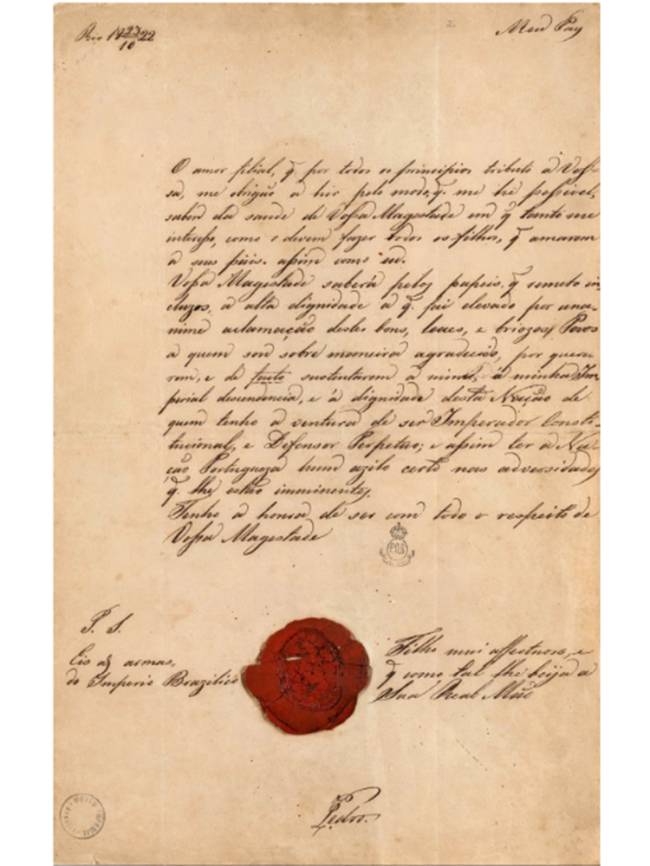 Rio 23/10 22
Meu Pay
O amor filial, q̃ por todos os principios tributo a Vos-
sa, me obriga a hir pelo modo, q̃ me he possivel,
saber da saude de Vossa Magestade em q̃ tanto me
interesso, como o devem fazer todos os filhos, q̃ amarem
a seus páis. assim como eu.
Vossa Magestade saberá pelos papeis q̃ remeto in-
cluzos, a alta dignidade a q̃ fui elevado por una-
nime aclamação destes bons, leaes, e briozos Povos
a quem sou sobre maneira agradecido, por quere-
rem, e de facto sustentarem a mim, á minha Im-
perial descendencia, e á dignidade desta Nação de
quem tenho a ventura de ser Imperador Consti-
tucional, e Defensor Perpetuo; e assim ter a Na-
ção Portugueza hum azilo certo nas adversidades,
q̃ lhe estão imminentes.
Tenho a honra de ser com todo o respeito de
Vossa Magestade
P. S.
Eis as armas,
do Imperio Brazilico
Filho mui affectuoso, e
q̃ como tal lhe beija a
Sua Real Mão
Pedro.